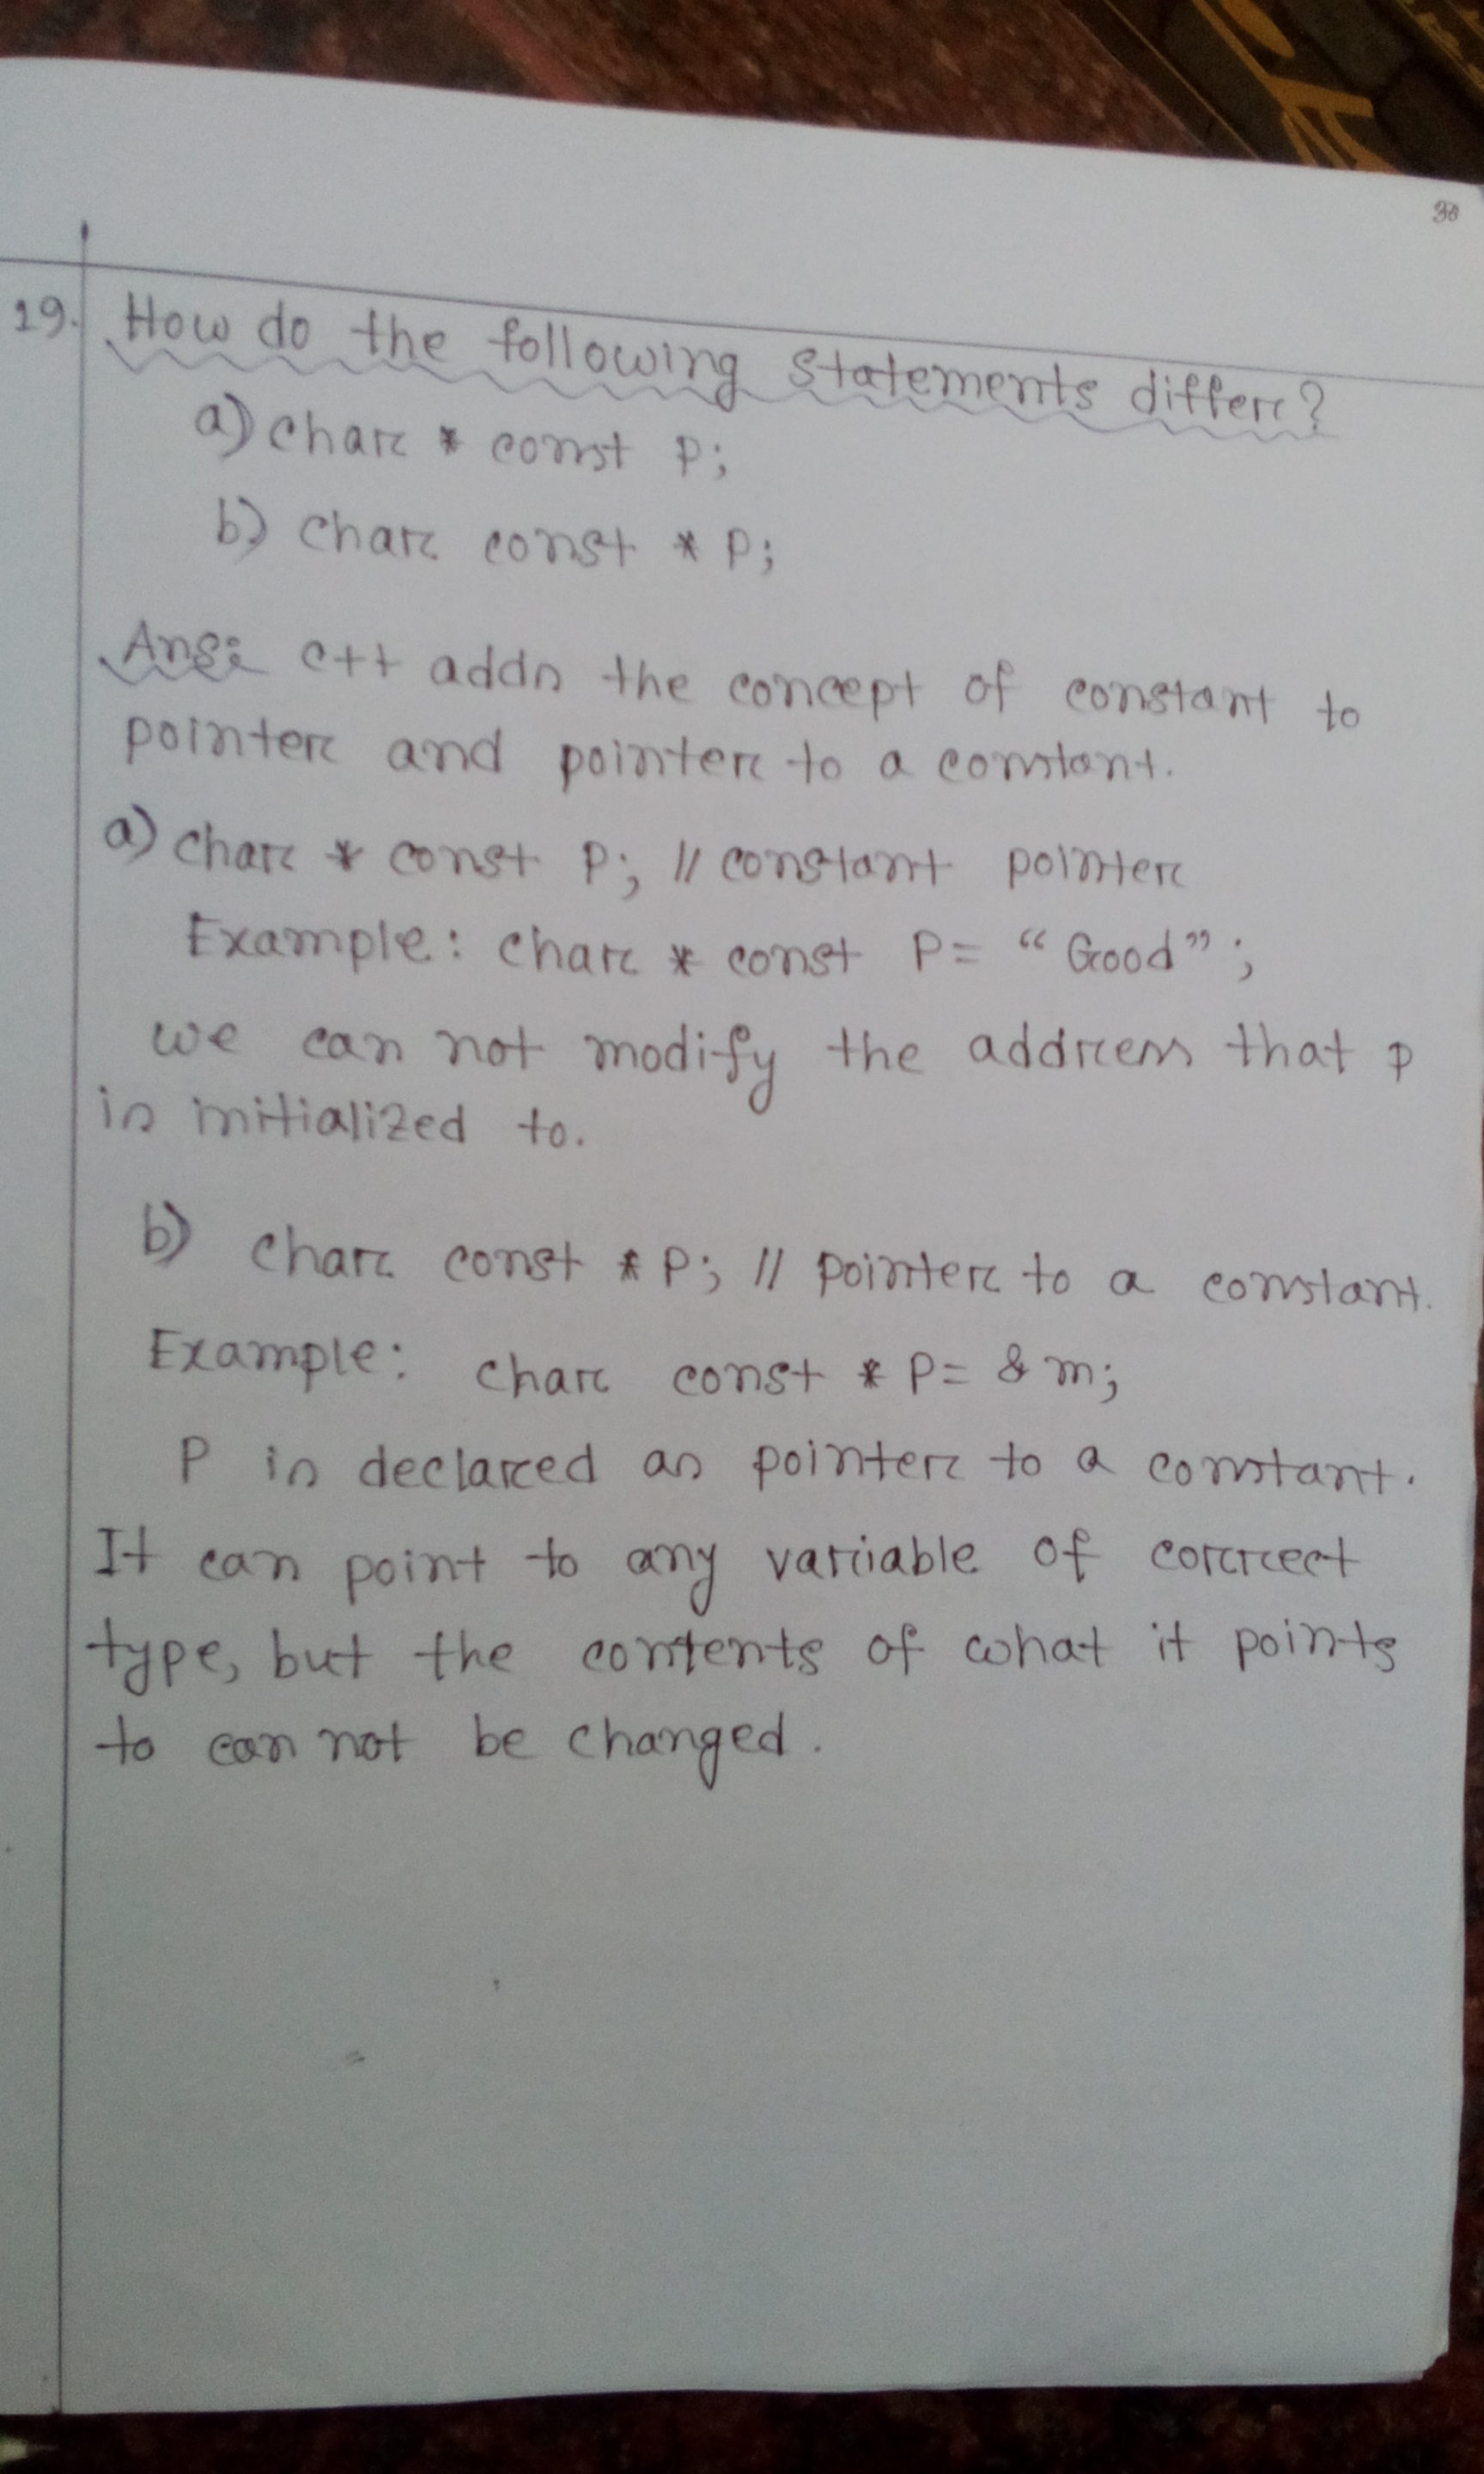 30
19. How do the following statements differ?
a) char * const p;
b) char const * p;
Ans: c++ adds the concept of constant to
pointer and pointer to a constant.
a) char * const p; // constant pointer
Example: char * const p= “Good”;
we can not modify the address that p
is initialized to.
b) char const * p; // pointer to a constant.
Example: char const * p= & m;
P is declared as pointer to a constant.
It can point to any variable of correct
type, but the contents of what it points
to can not be changed.